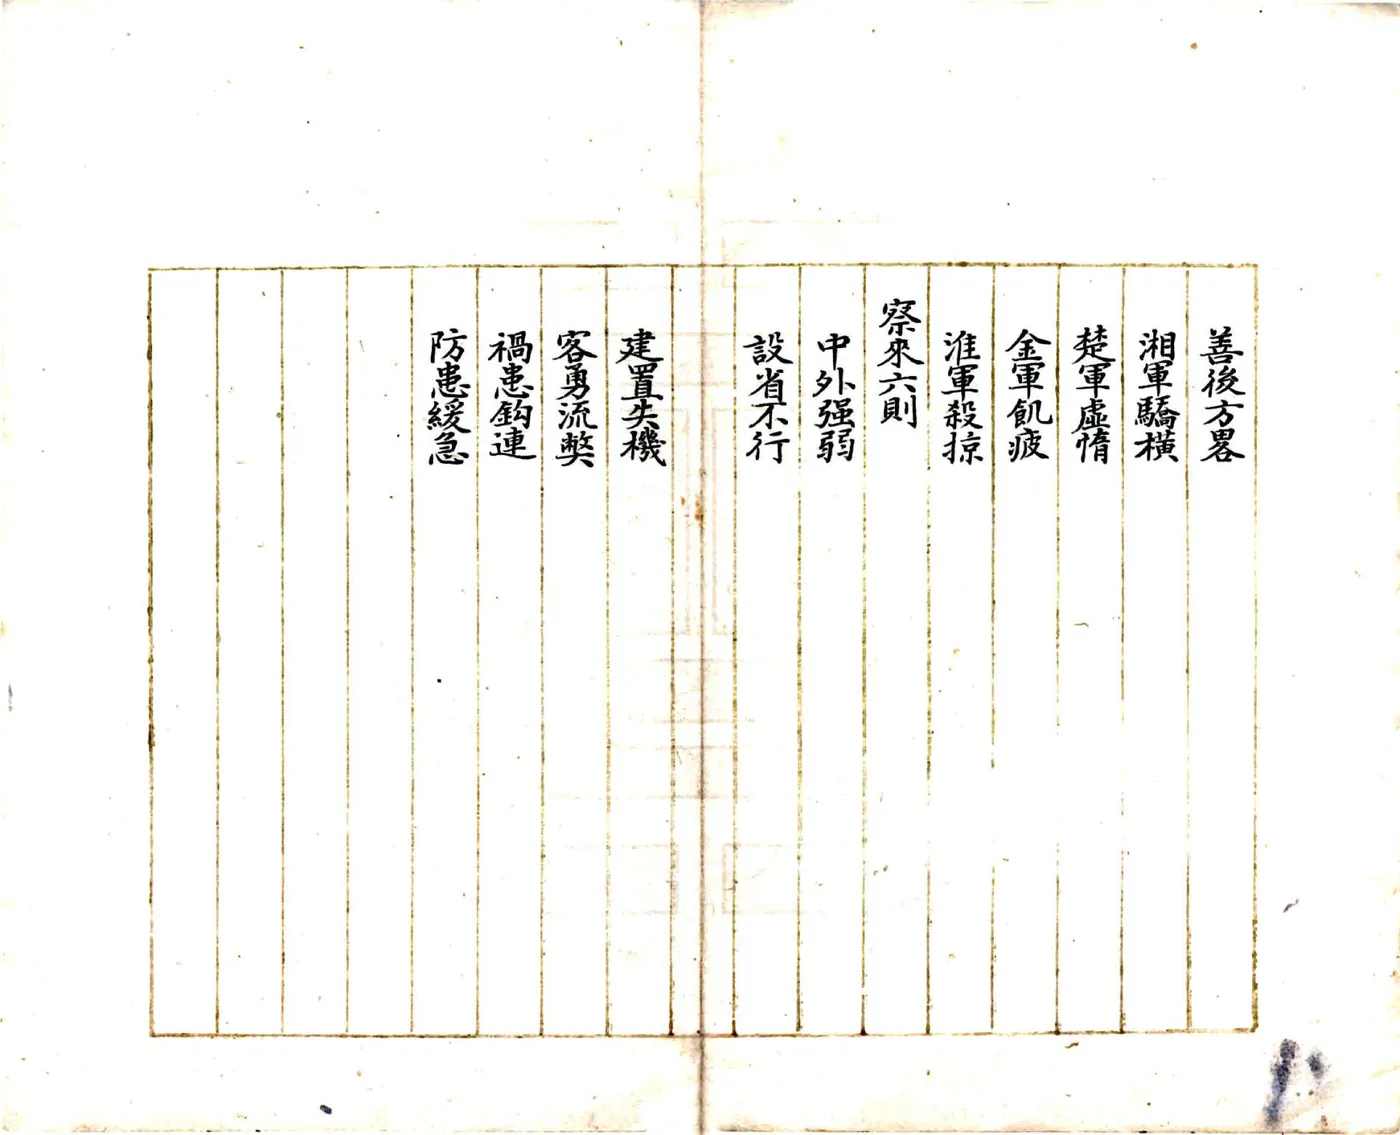 善後方畧
湘軍驕橫
楚軍虛惰
金軍飢疲
淮軍殺掠
察來六則
中外强弱
設省不行
建置失機
客勇流弊
禍患鈎連
防患緩急